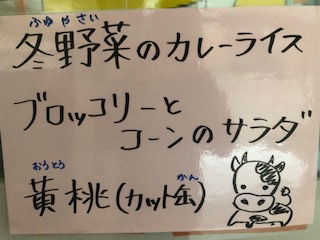 ふゆやさい
冬野菜のカレーライス
ブロッコリーと
コーンのサラダ
おうとう かん
黄桃(カット缶)